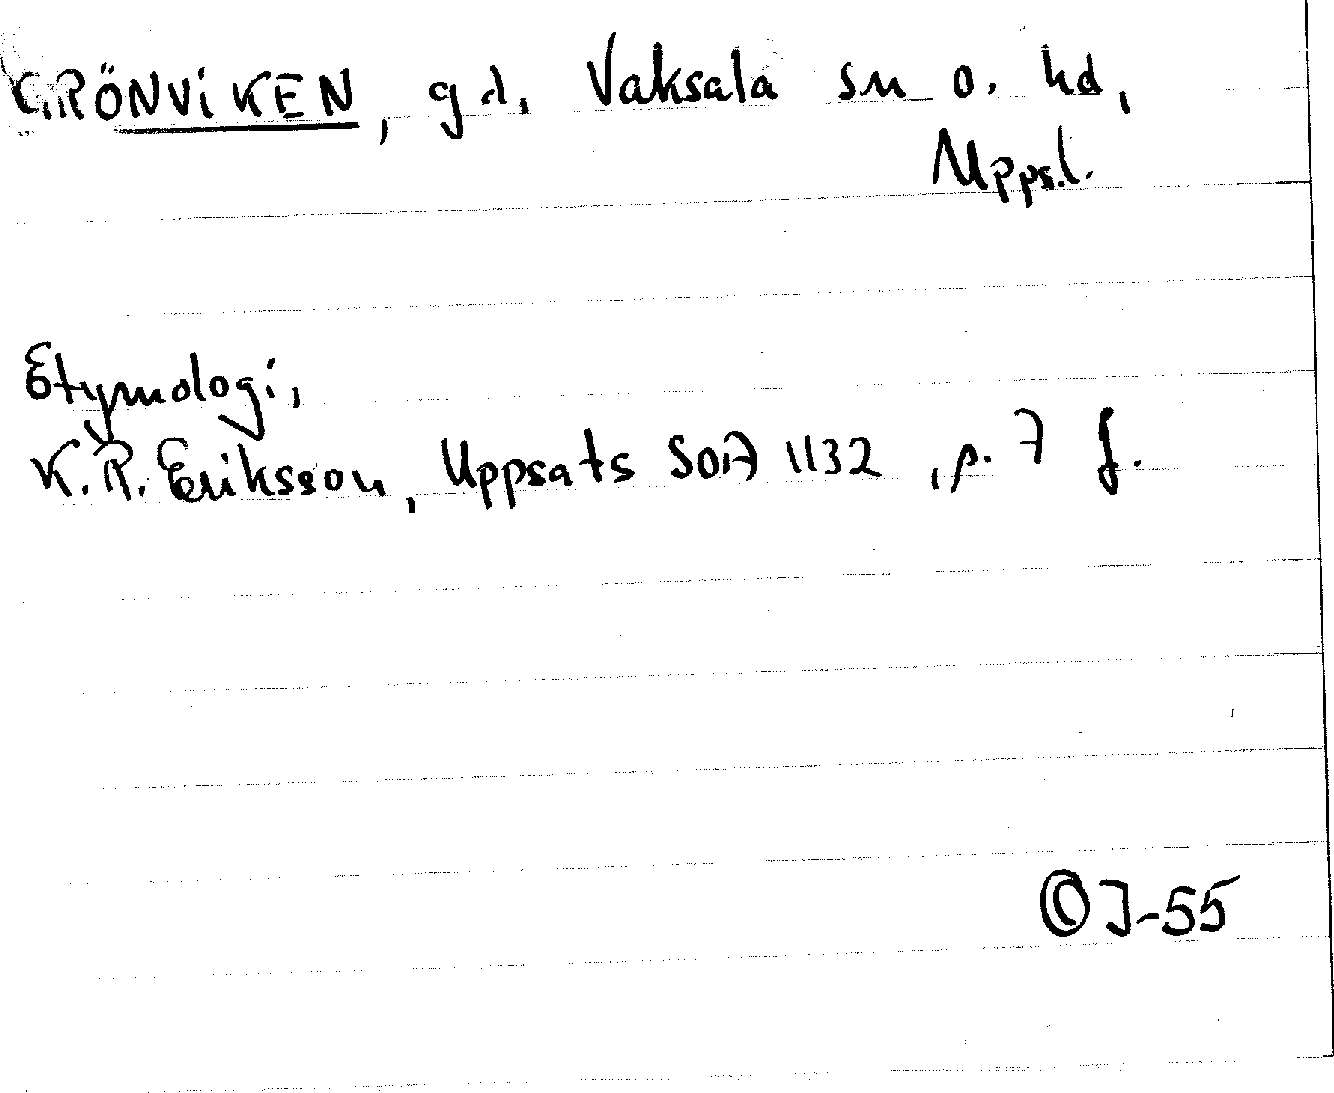 GRÖNVIKEN, gd, Vaksala sn o. hd,
Uppsl.
Etymologi,
K.R. Eriksson, Uppsats SOA 1132, p. 7 f.
©J-55